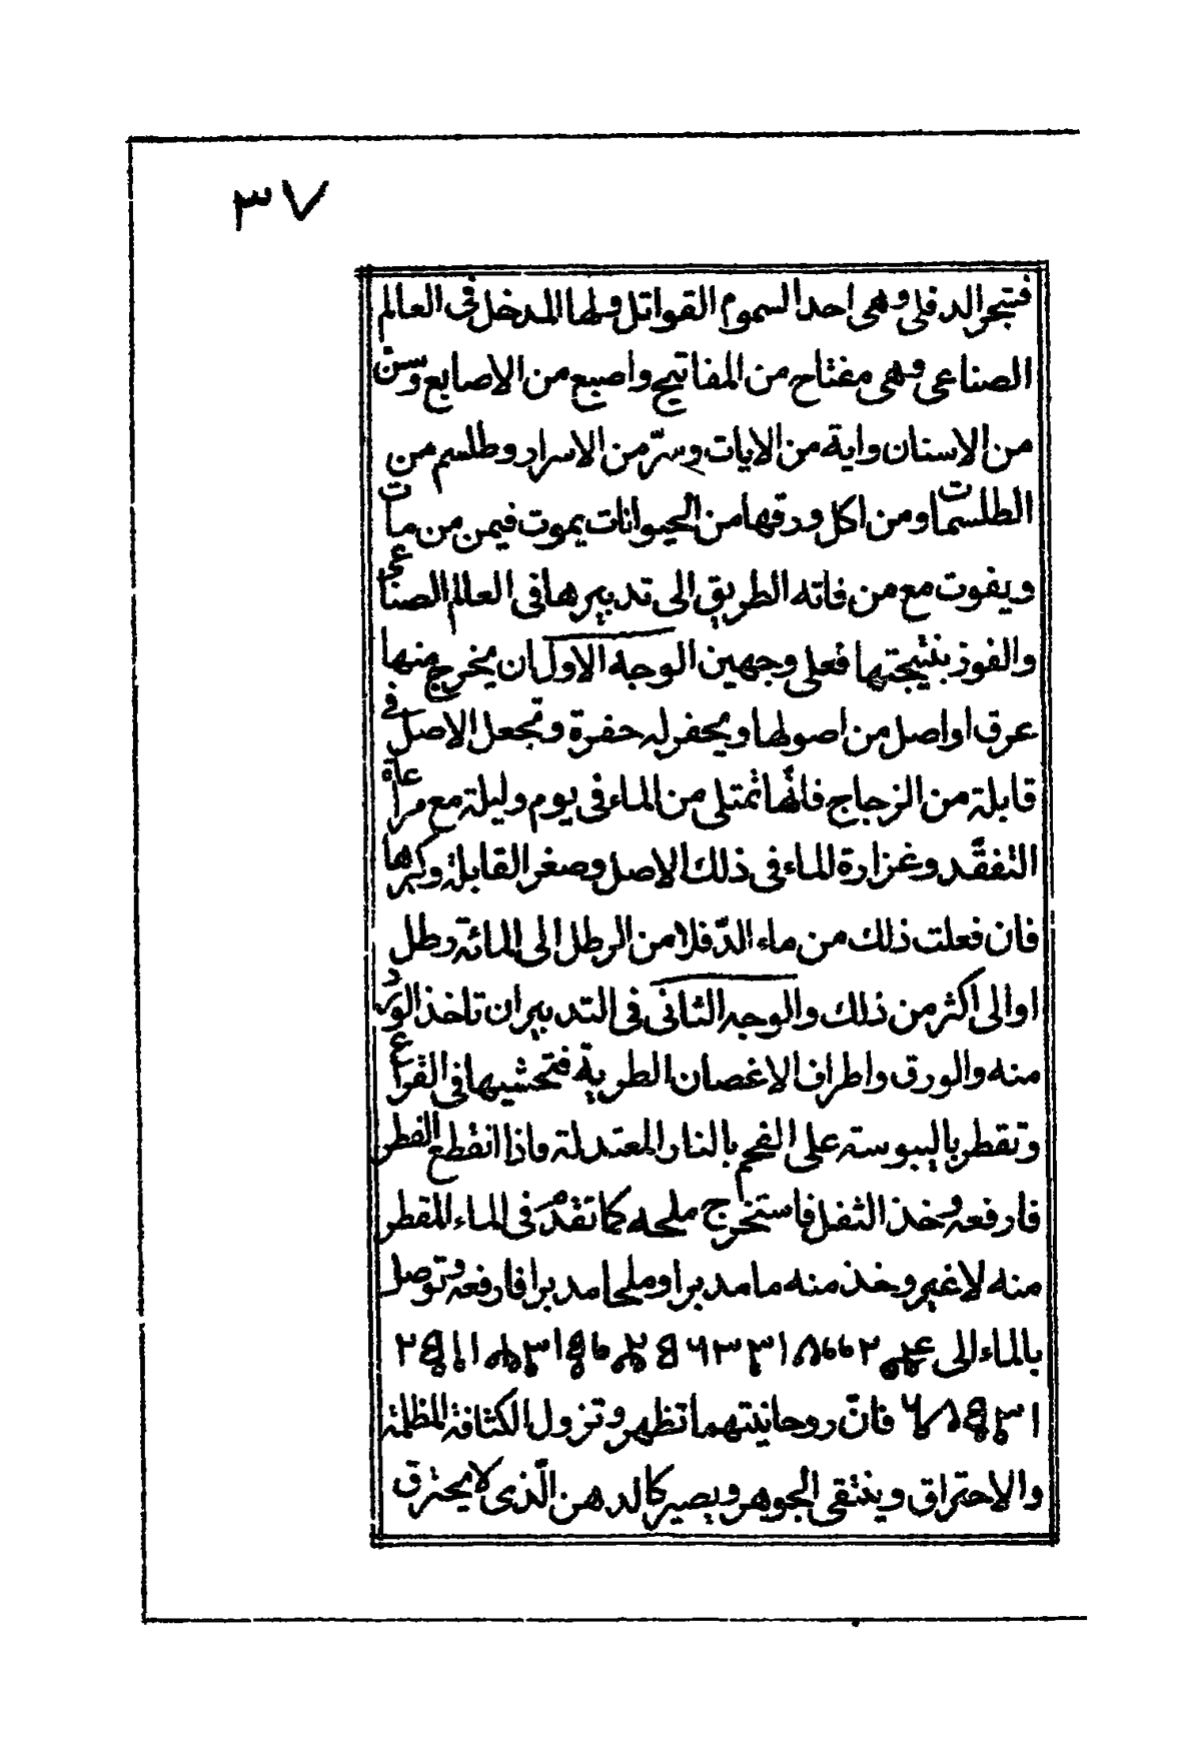 ٣٧
فتبجر الدفلى وهى احد السموم القواتل ولها المدخل فى العالم
الصناعى وهى مفتاح من المفاتيح واصبع من الاصابع وسن
من الاسنان واية من الايات وسرّ من الاسرار وطلسم من
الطلسمات ومن اكل ورقها من الحيوانات يموت فيمن من مات
ويفوت مع من فاته الطريق الى تدبيرها فى العالم الصناعى
والفوز بنتيجتها فعلى وجهين الوجه الاول ان يخرج منها
عرق او اصل من اصولها ويحفر له حفرة وتجعل الاصل فى
قابلة من الزجاج فانّها تمتلى من الماء فى يوم وليلة مع مراعاة
التفقّد وغزارة الماء فى ذلك الاصل وصغر القابلة وكبرها
فان فعلت ذلك من ماء الدّفلا من الرطل الى المائة رطل
او الى اكثر من ذلك والوجه الثانى فى التدبير ان تاخذ الورد
منه والورق واطراف الاغصان الطرية فتحشيها فى القرع
وتقطر باليبوسة على الفحم بالنار المعتدلة فاذا انقطع القطر
فارفعه وخذ الثفل فاستخرج ملحه كما تقدّم فى الماء المقطر
منه لا غير وخذ منه ما مدبرا وملحا مدبرا فارفعه وتوصل
بالماء الى
فانّ روحانيتهما تظهر وتزول الكثافة المظلمة
والاحتراق وينتقى الجوهر ويصير كالدهن الّذى لا يحترق